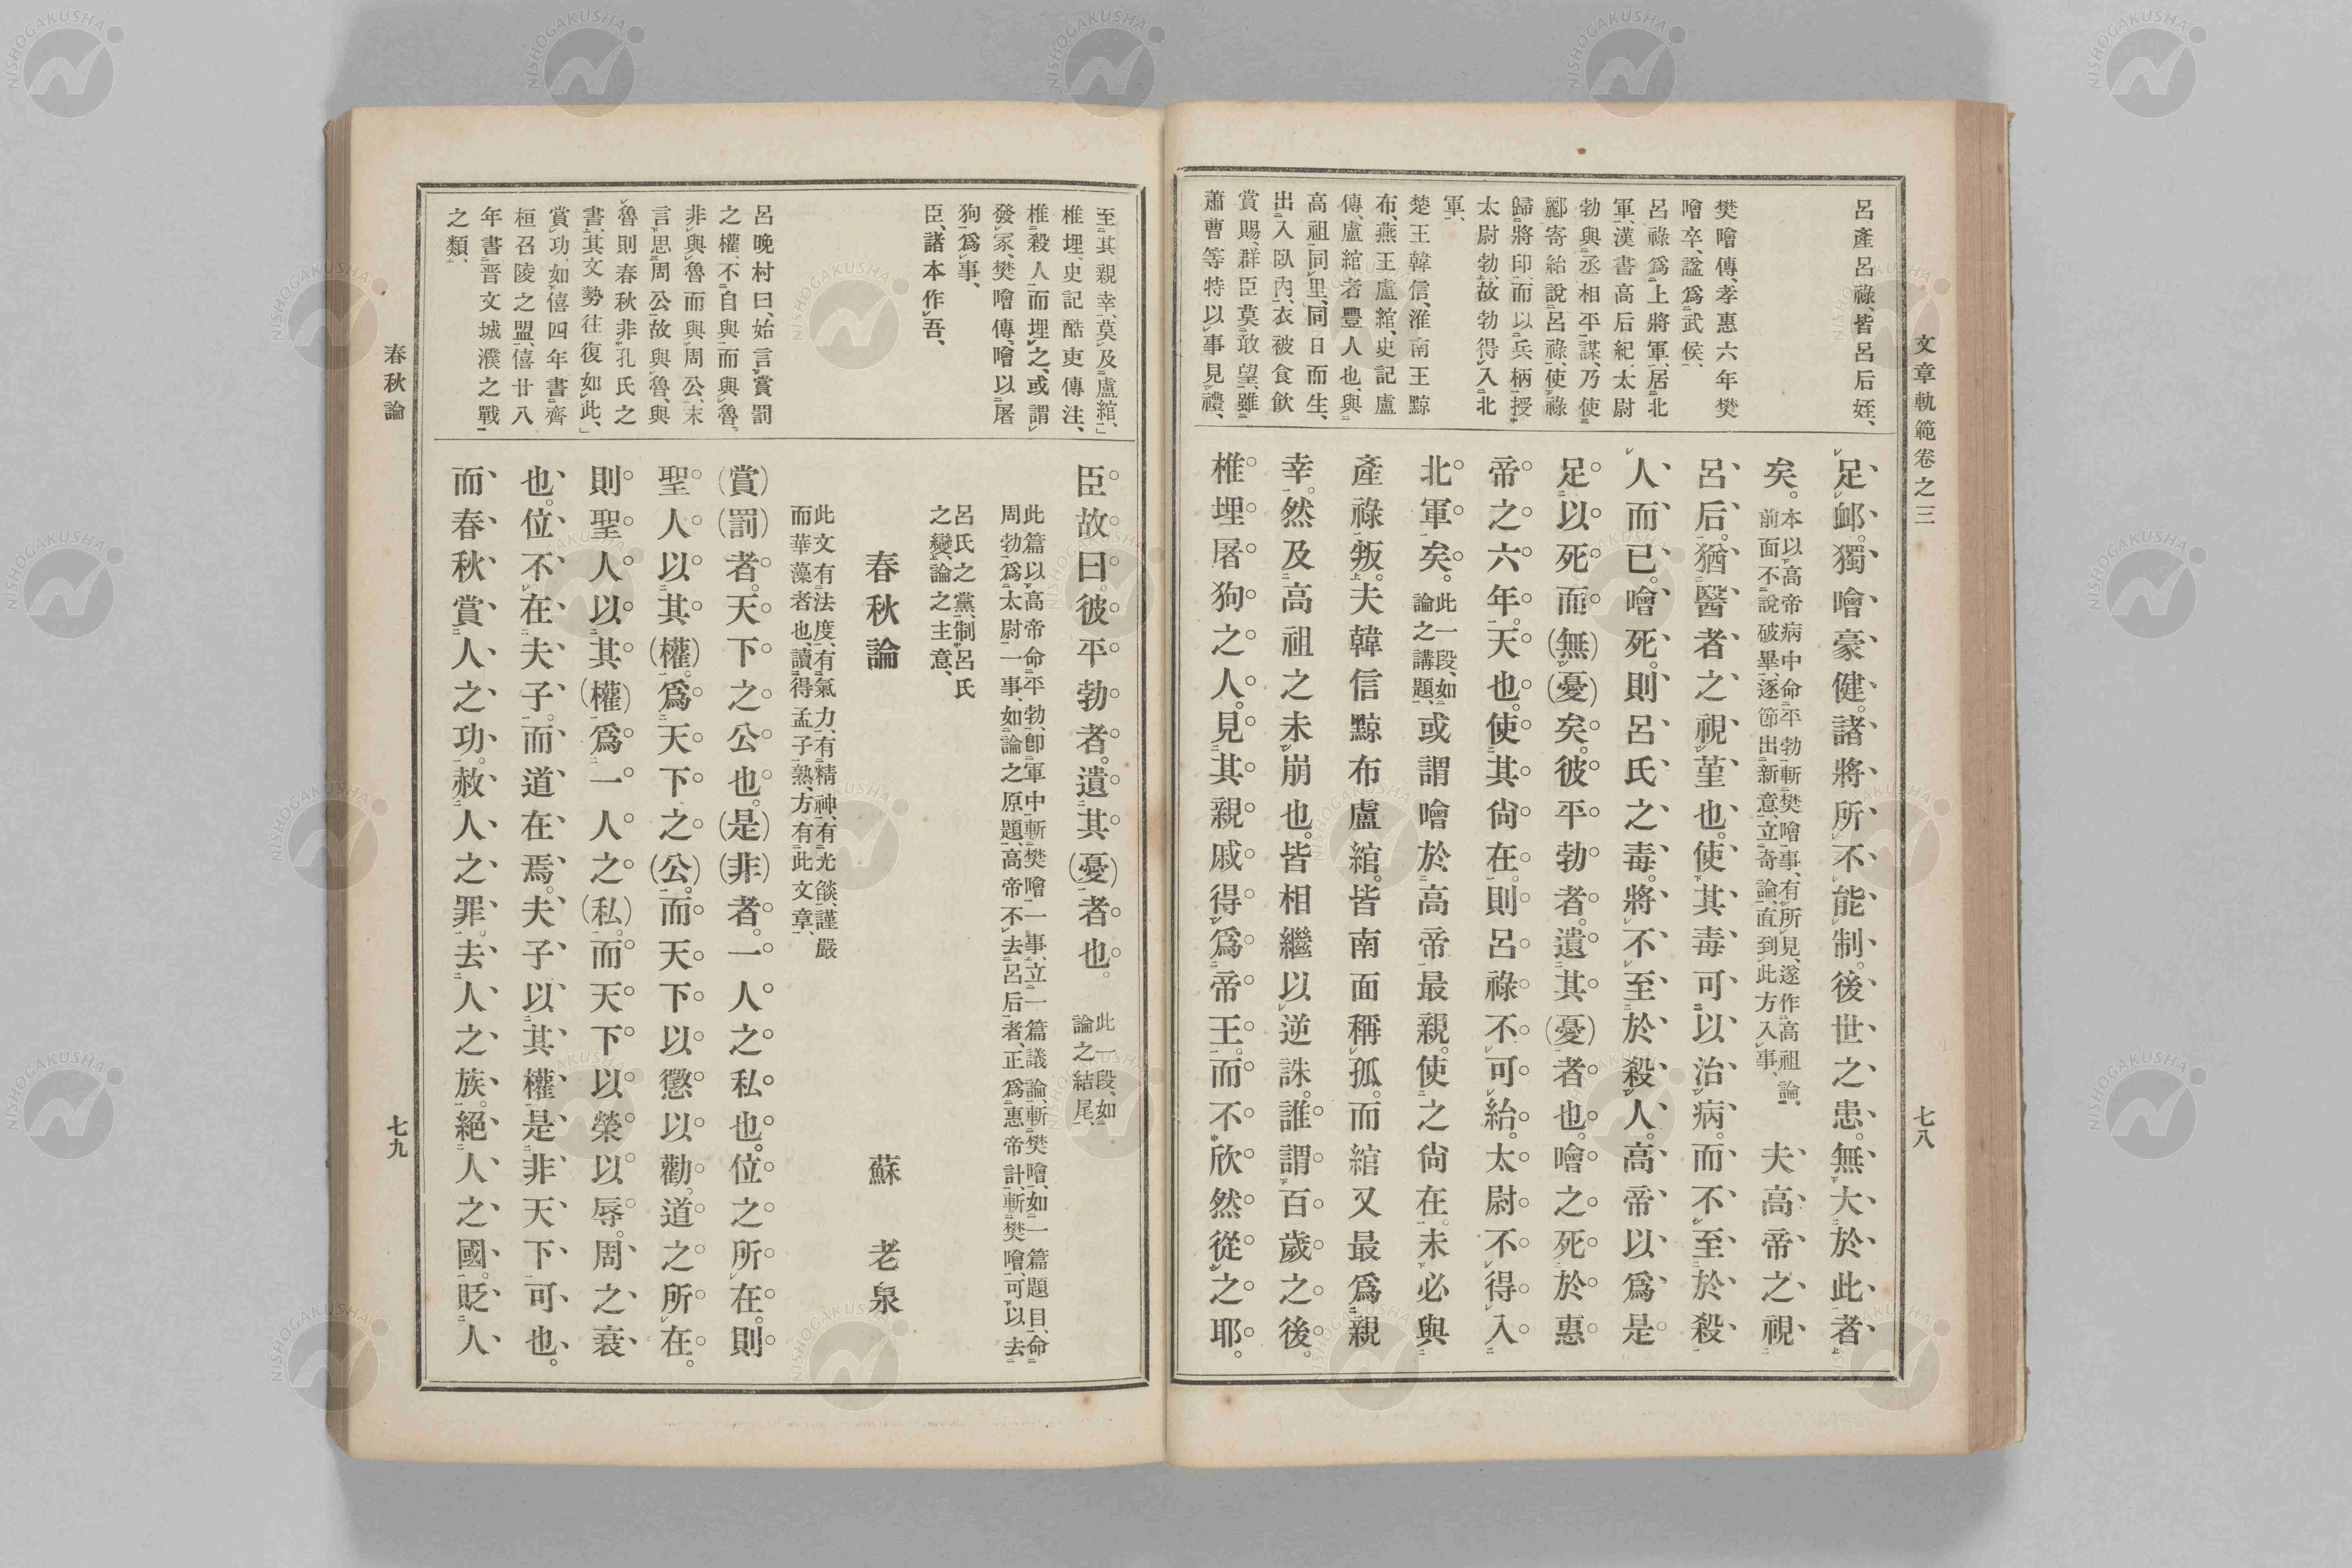 文章軌範卷之三
七八
呂產呂祿、皆呂后姪、
樊噲傳、孝惠六年樊
噲卒、謚爲武侯、
呂祿爲上將軍、居北
軍、漢書高后紀、太尉
勃與丞相平謀、乃使
酈寄紿說呂祿、使祿
歸將印、而以兵柄授
太尉勃、故勃得入北
軍、
楚王韓信、淮南王黥
布、燕王盧綰、史記盧
傳、盧綰者豐人也、與
高祖同里、同日而生、
出入臥內、衣被食飲
賞賜、群臣莫敢望、雖
蕭曹等特以事見禮、
足䘏。獨噲豪健。諸將所不能制。後世之患。無大於此者
矣。本以高帝病中命平勃斬樊噲事、有所見、遂作高祖論、
前面不說破畢、逐節出新意、立奇論、直到此方入事、
夫高帝之視
呂后。猶醫者之視菫也。使其毒可以治病。而不至於殺
人而已。噲死。則呂氏之毒。將不至於殺人。高帝以爲是
足以死而(無)(憂)矣。彼平勃者。遺其(憂)者也。噲之死於惠
帝之六年。天也。使其尙在。則呂祿不可紿。太尉不得入
北軍矣。此一段、如
論之講題、
或謂噲於高帝最親。使之尙在。未必與
產祿叛。夫韓信黥布盧綰。皆南面稱孤。而綰又最爲親
幸。然及高祖之未崩也。皆相繼以逆誅。誰謂百歲之後。
椎埋屠狗之人。見其親戚得爲帝王。而不欣然從之耶。
至其親幸、莫及盧綰、」
椎埋、史記酷吏傳注、
椎殺人而埋之、或謂
發冢、樊噲傳、噲以屠
狗爲事、
臣、諸本作吾、
呂晚村曰、始言賞罰
之權、不自與而與魯。
非與魯而與周公、末
言思周公故與魯、與
魯則春秋非孔氏之
書、其文勢往復如此、」
賞功、如僖四年書齊
桓召陵之盟、僖廿八
年書晉文城濮之戰
之類、
臣。故曰。彼平勃者。遺其(憂)者也。
此一段、如
論之結尾、
此篇以高帝命平勃、卽軍中斬樊噲一事、立一篇議論、斬樊噲、如一篇題目、命
周勃爲太尉一事、如論之原題、高帝不去呂后者、正爲惠帝計、斬樊噲、可以去
呂氏之黨、制呂氏
之變、論之主意、
春秋論
蘇老泉
此文有法度、有氣力、有精神、有光燄、謹嚴
而華藻者也、讀得孟子熟、方有此文章、
(賞)(罰)者。天下之公也。(是)(非)者。一人之私也。位之所在。則
聖人以其(權)。爲天下之(公)。而天下以懲以勸。道之所在。
則聖人以其(權)爲一人之(私)。而天下以榮以辱。周之衰
也。位不在夫子。而道在焉。夫子以其權是非天下可也。
而春秋賞人之功。赦人之罪。去人之族。絕人之國。貶人
春秋論
七九